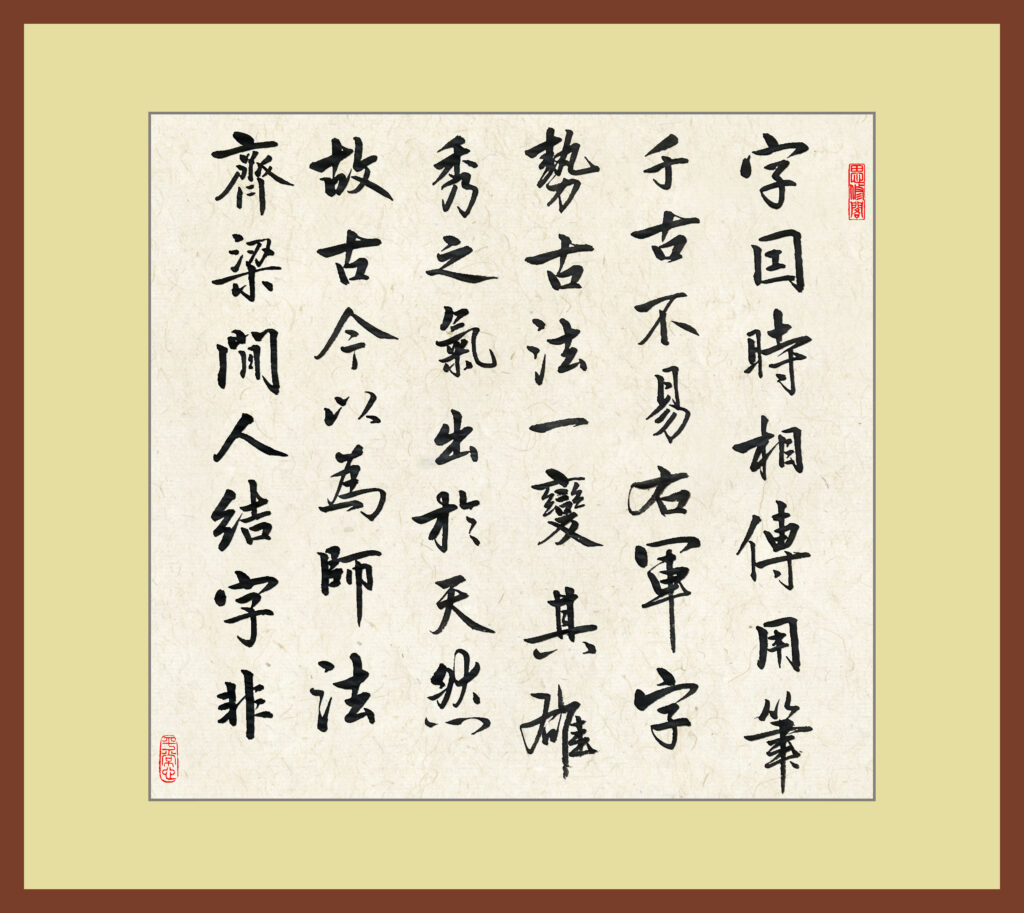 思修閣
字因時相傳用筆
千古不易右軍字
勢古法一變其雄
秀之氣出於天然
故古今以為師法
齊梁間人結字非
平常心